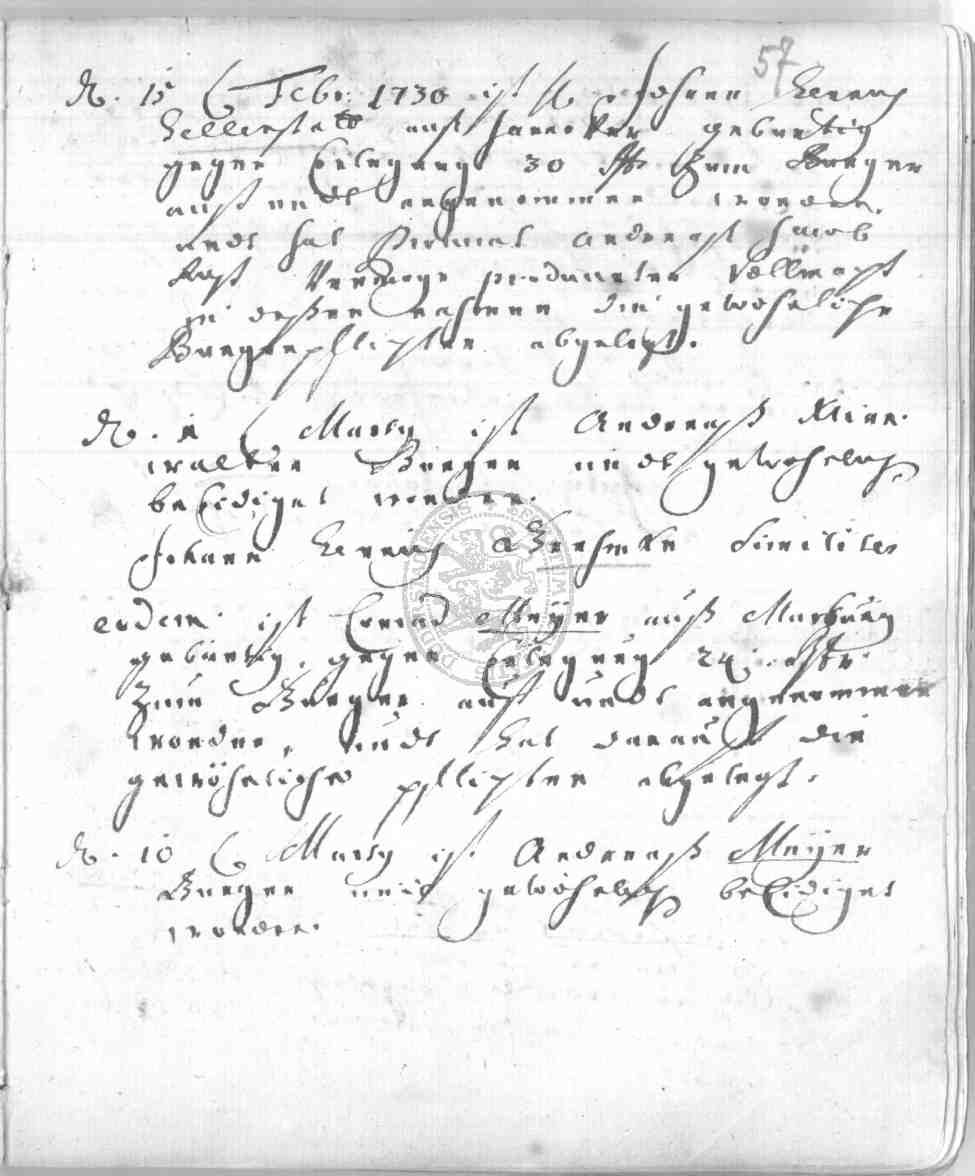 57
d. 15 Febr. 1730 ist H. Johann Henrich
Hellerstatt auß Hannover gebürtig
gegen Erlegung 30 rthr. zum Burger
auff undt angenommen worden.
undt hat Andreaß Jacob
Vermöge producirter Vollmacht
in deßen nahmen die gewöhnliche
Burgerpflichten abgelegt.
d. Marty ist Andreaß Winn-
walter Burger undt gewöhnlich
beeidiget worden.
Johann Henrich similiter
eodem ist Conrad Meÿer auß Marburg
gebürtig, gegen Erlegung 24 rthr.
zum Burger auff undt angenommen
worden, undt hat darauff die
gewöhnliche pflichten abgelegt.
d. 10 Marty ist Andreaß Meÿer
Burger undt gewöhnlich beeidiget
worden.